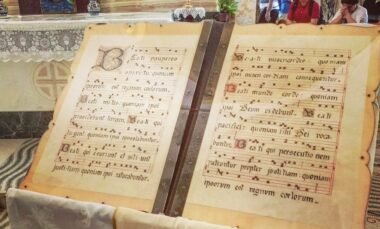 Beati pauperes
spiritu, quoniam
ipsorum est regnum cœlorum.
Beati mites: quoniam ipsi
possidebunt terram. Beati
qui lugent: quoniam ipsi consolabuntur.
Beati qui esuriunt et sitiunt
justitiam: quoniam ipsi saturabuntur.
Beati misericordes: quoniam
ipsi misericordiam consequentur.
Beati mundo corde: quoniam
ipsi Deum videbunt. Beati
pacifici: quoniam filii Dei voca
buntur. Beati qui persecutionem
patiuntur propter justitiam: quoniam
ipsorum est regnum cœlorum.